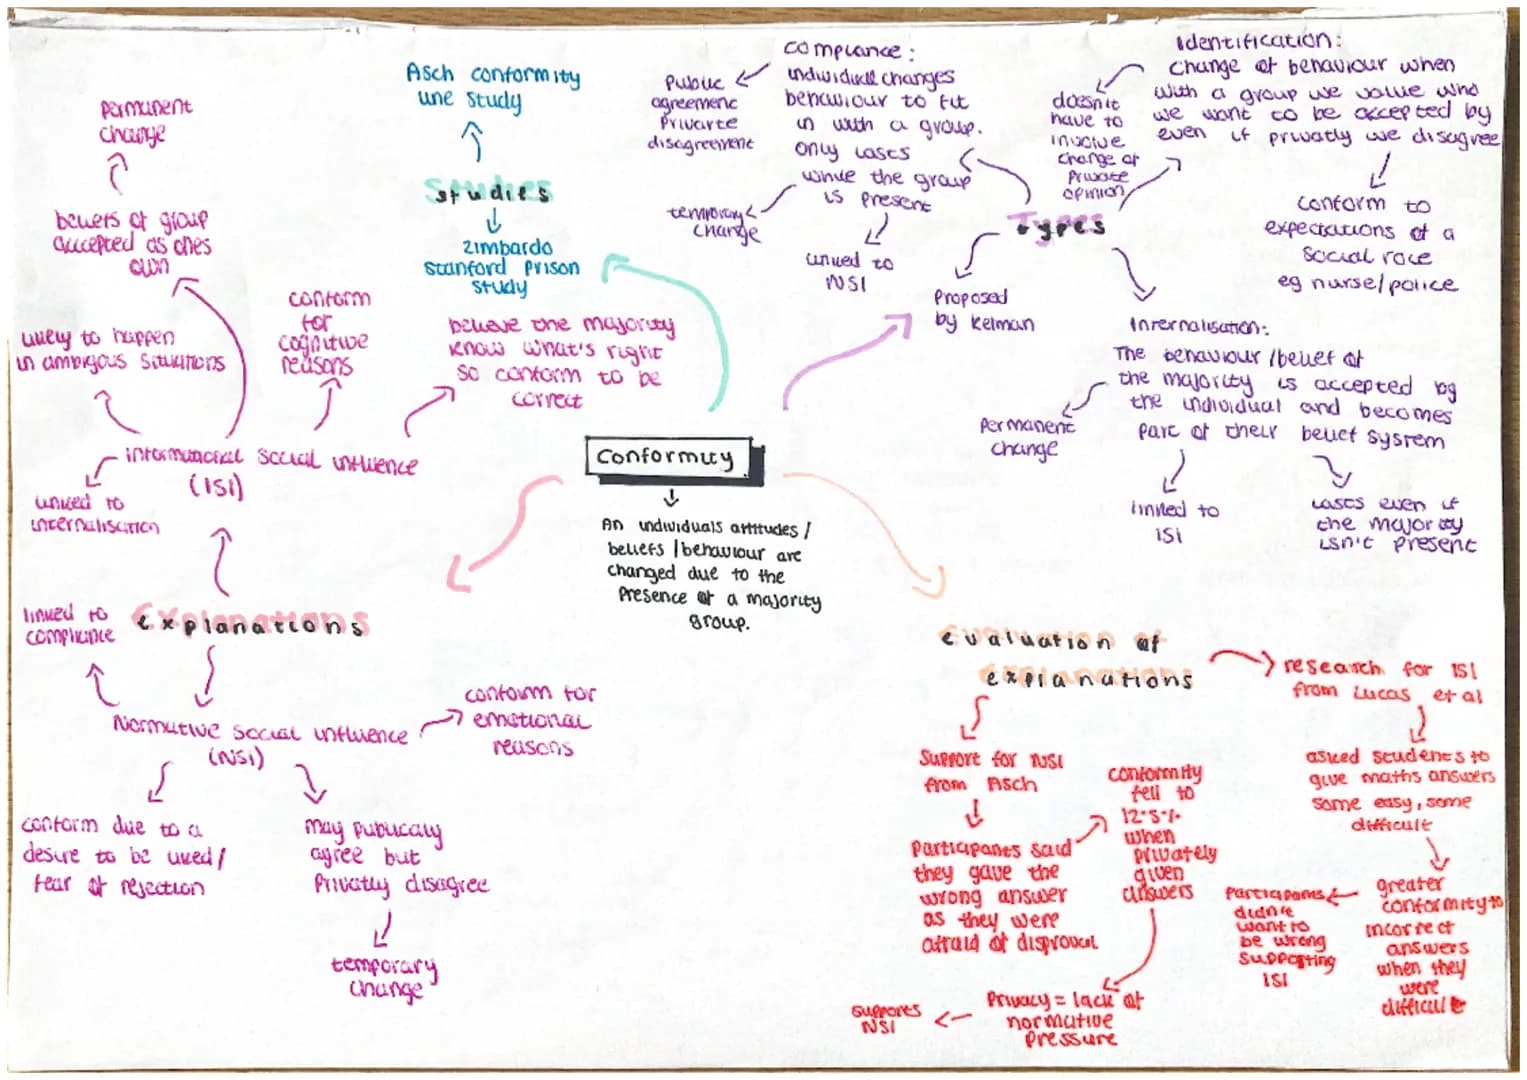 Conformity
An individuals attitudes /
beliefs / behaviour are
changed due to the
presence of a majority
group.
studies
Asch conformity
line study
Zimbardo
Stanford prison
study
Types
Proposed
by Kelman
compliance:
individual changes
behaviour to fit
in with a group.
only lasts
while the group
is present
Public
agreement
Private
disagreement
temporary
change
linked to
NSI
Identification:
change of behaviour when
with a group we value who
we want to be accepted by
even if privatly we disagree
doesn't
have to
involve
change of
private
opinion
conform to
expectations of a
social role
eg nurse/police
Internalisation:
The behaviour / belief of
the majority is accepted by
the individual and becomes
part of their belief system
permanent
change
linked to
ISI
lasts even if
the majority
isn't present
explanations
informational social influence
(ISI)
linked to
internalisation
likely to happen
in ambigous situations
beliefs of group
accepted as ones
own
permanent
change
conform
for
cognitive
reasons
believe the majority
know what's right
so conform to be
correct
Normative social influence
(NSI)
linked to
compliance
conform for
emotional
reasons
conform due to a
desire to be liked /
fear of rejection
may publically
agree but
privatly disagree
temporary
change
evaluation of
explanations
Support for NSI
from Asch
Participants said
they gave the
wrong answer
as they were
afraid of disproval
conformity
fell to
12.5%
when
privately
given
answers
Privacy = lack of
normative
pressure
supports
NSI
research for ISI
from Lucas et al
asked students to
give maths answers
some easy, some
difficult
greater
conformity to
incorrect
answers
when they
were
difficult
Participants
didn't
want to
be wrong
supporting
ISI